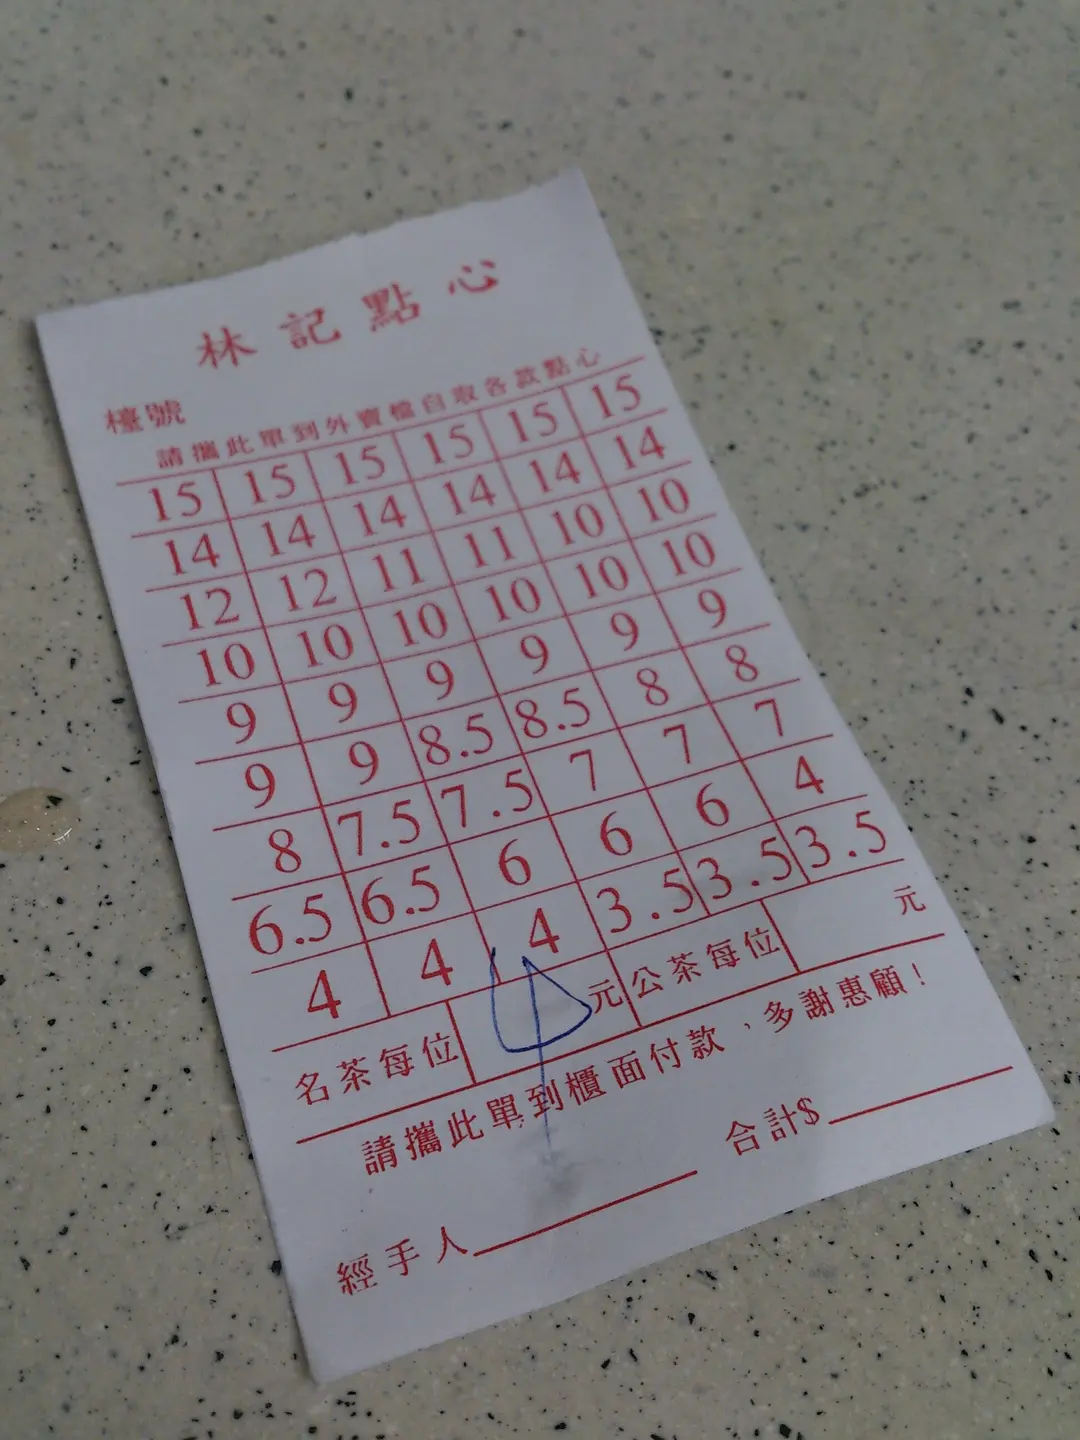 林記點心
檯號
請攜此單到外賣檔自取各款點心
15 15 15 15 15 15
14 14 14 14 14 14
12 12 11 11 10 10
10 10 10 10 10 10
9 9 9 9 9 9
9 9 8.5 8.5 8 8
8 7.5 7.5 7 7 7
6.5 6.5 6 6 6 4
4 4 4 3.5 3.5 3.5
名茶每位 元 公茶每位 元
請攜此單到櫃面付款、多謝惠顧！
經手人 合計$